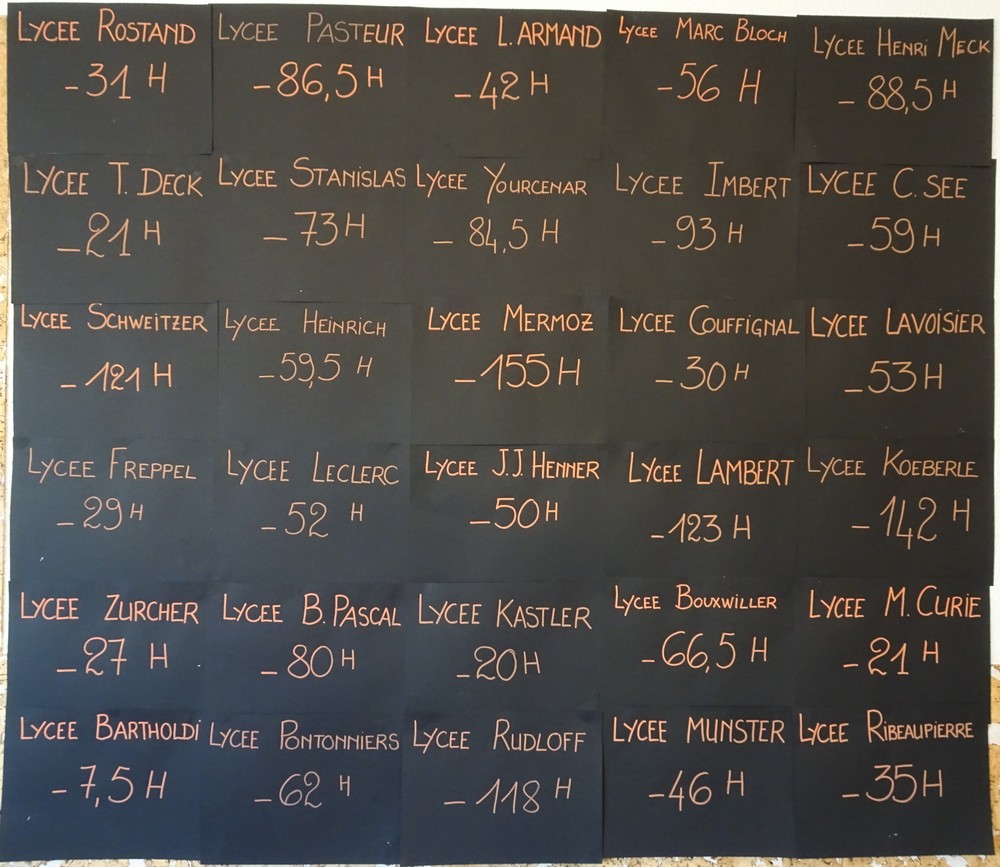 LYCEE ROSTAND
-31 H
LYCEE PASTEUR
-86,5 H
LYCEE L. ARMAND
-42 H
LYCEE MARC BLOCH
-56 H
LYCEE HENRI MECK
- 88,5 H
LYCEE T. DECK
-21 H
LYCEE STANISLAS
- 73 H
LYCEE YOURCENAR
- 84,5 H
LYCEE IMBERT
- 93 H
LYCEE C. SEE
-59 H
LYCEE SCHWEITZER
- 121 H
LYCEE HEINRICH
-59,5 H
LYCEE MERMOZ
-155 H
LYCEE COUFFIGNAL
-30 H
LYCEE LAVOISIER
-53 H
LYCEE FREPPEL
-29 H
LYCEE LECLERC
-52 H
LYCEE J.J. HENNER
-50 H
LYCEE LAMBERT
-123 H
LYCEE KOEBERLE
- 142 H
LYCEE ZURCHER
-27 H
LYCEE B. PASCAL
-80 H
LYCEE KASTLER
-20 H
LYCEE BOUXWILLER
-66,5 H
LYCEE M. CURIE
-21 H
LYCEE BARTHOLDI
-7,5 H
LYCEE PONTONNIERS
-62 H
LYCEE RUDLOFF
- 118 H
LYCEE MUNSTER
-46 H
LYCEE RIBEAUPIERRE
-35 H